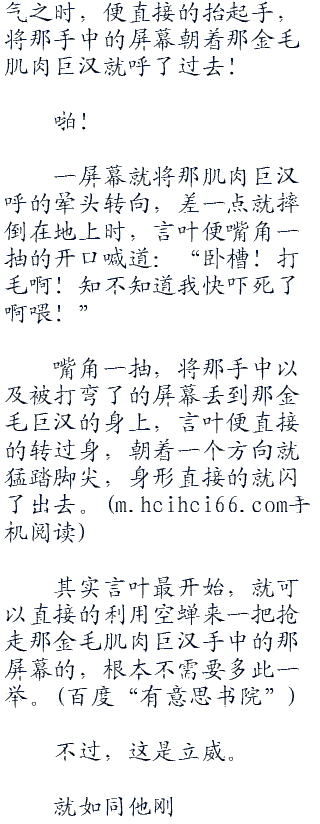 气之时，便直接的抬起手，
将那手中的屏幕朝着那金毛
肌肉巨汉就呼了过去！
啪！
一屏幕就将那肌肉巨汉
呼的晕头转向，差一点就摔
倒在地上时，言叶便嘴角一
抽的开口喊道：“卧槽！打
毛啊！知不知道我快吓死了
啊喂！”
嘴角一抽，将那手中以
及被打弯了的屏幕丢到那金
毛巨汉的身上，言叶便直接
的转过身，朝着一个方向就
猛踏脚尖，身形直接的就闪
了出去。(m.hcihci66.com手
机阅读)
其实言叶最开始，就可
以直接的利用空蝉来一把抢
走那金毛肌肉巨汉手中的那
屏幕的，根本不需要多此一
举。(百度“有意思书院”)
不过，这是立威。
就如同他刚